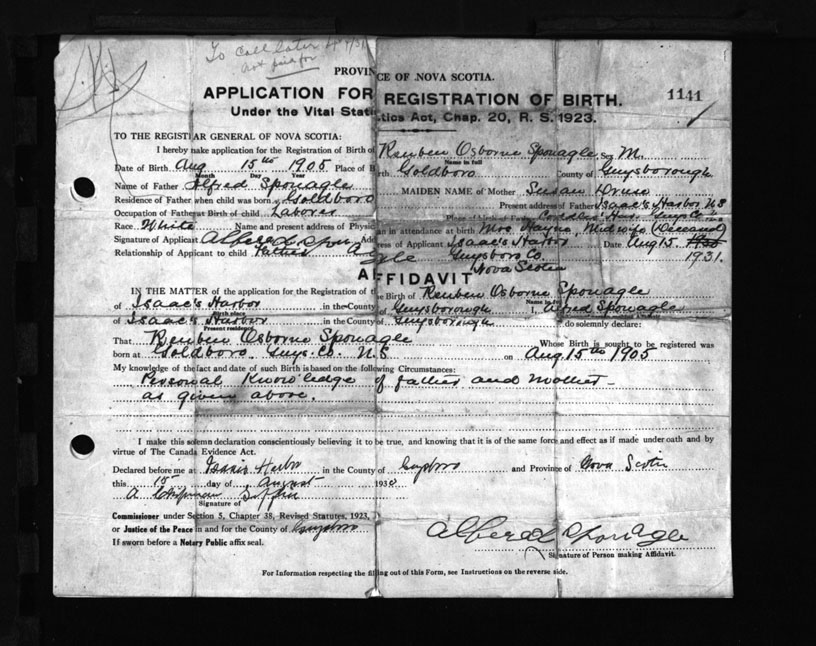 To call later
not paid for
PROVINCE OF NOVA SCOTIA.
APPLICATION FOR REGISTRATION OF BIRTH.
1141
Under the Vital Statistics Act, Chap. 20, R. S. 1923.
TO THE REGISTRAR GENERAL OF NOVA SCOTIA:
I hereby make application for the Registration of Birth of Reuben Osborne Sponagle Sex M.
Name in full
Date of Birth Aug 15th 1905 Place of Birth Goldboro County of Guysborough
Month Day Year
Name of Father Alfred Sponagle MAIDEN NAME of Mother Susan
Residence of Father when child was born Goldboro Present address of Father Isaac's Harbor NS
Occupation of Father at Birth of child Laborer Place of Birth of Father Guys Co
Race White Name and present address of Physician in attendance at birth Mrs Hayne, Midwife (Deceased)
Signature of Applicant Address of Applicant Isaac's Harbor Date Aug 15.
Relationship of Applicant to child Father Guysboro Co. 1931.
Nova Scotia
AFFIDAVIT
IN THE MATTER of the application for the Registration of the Birth of Reuben Osborne Sponagle
Name in full
of Isaac's Harbor in the County of Guysborough I, Alfred Sponagle
Birth place
of Isaac's Harbor in the County of Guysborough do solemnly declare:
Present residence
That Reuben Osborne Sponagle Whose Birth is sought to be registered was
born at Goldboro Guys. Co. N S on Aug. 15th 1905
My knowledge of the fact and date of such Birth is based on the following Circumstances:
Personal Knowledge of father and mother
as given above.
I make this solemn declaration conscientiously believing it to be true, and knowing that it is of the same force and effect as if made under oath and by
virtue of The Canada Evidence Act.
Declared before me at Isaacs Harbor in the County of Guysboro and Province of Nova Scotia
this 15 day of August 193
A
Signature of
Commissioner under Section 5, Chapter 38, Revised Statutes, 1923,
or Justice of the Peace in and for the County of Guysboro
If sworn before a Notary Public affix seal.
Signature of Person making Affidavit.
For Information respecting the filling out of this Form, see Instructions on the reverse side.